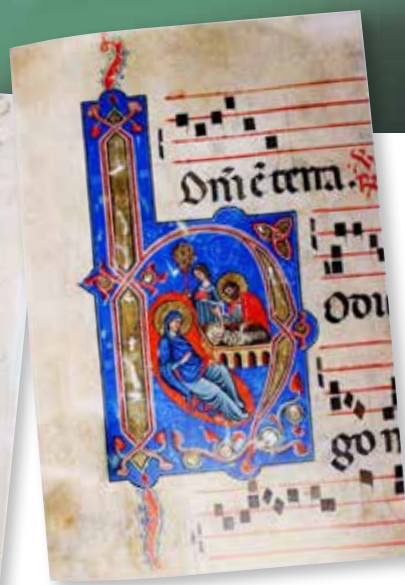 Dñi ẽ terra.
H
Odi
go n